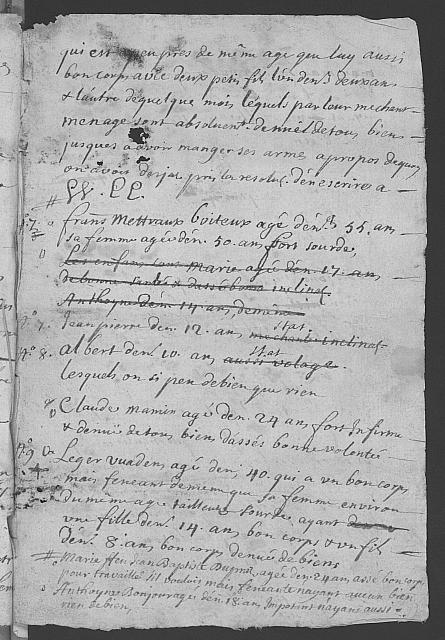 qui est a peu pres de même age que luy aussi
bon corps avec deux petis fils l'un den. 3 deux ans
& l'autre de quelque mois léquels par leur mechant
menage sont absoluent denüé de tous biens
jusques a avoir mangé ses armes a propos dequoy
on avoit desja pris la resolu. den escrires a
LL. EE.
frans Mettraux boiteux agé den. 55. ans
sa femme ageé den. 50. ans fort sourde,
Les enfans sont Marie ageé den. 17. ans
de bonne santé & d'assé bone inclina.
Anthoyne den. 14 ans, de même
N.o 7. Jean pierre den. 12. ans stat. mechante inclinat.
N.o 8. albert den. 10. ans stat aussi volage.
lesquels on si peu de bien que rien
Claude manin agé den. 24 ans fort Infirme
& denüé de tous biens d'assés bonne volonté
N.o 9 Leger vuadens agé den. 40. qui a un bon corps
mais feneant de mem que sa femme environ
du même age tailleuse sourde, ayant
une fille den. 14. ans bon corps & un fils
den. 8. ans bon corps denüé de biens
Marie ffeu Jean Baptiste agée den. 24 ans assé bon corp
pour travaillé sil vouloit mais feneante nayant aucun bien
Anthoyne Bonjour agé den. 18. ans Impotent nayans aussi
rien de bien